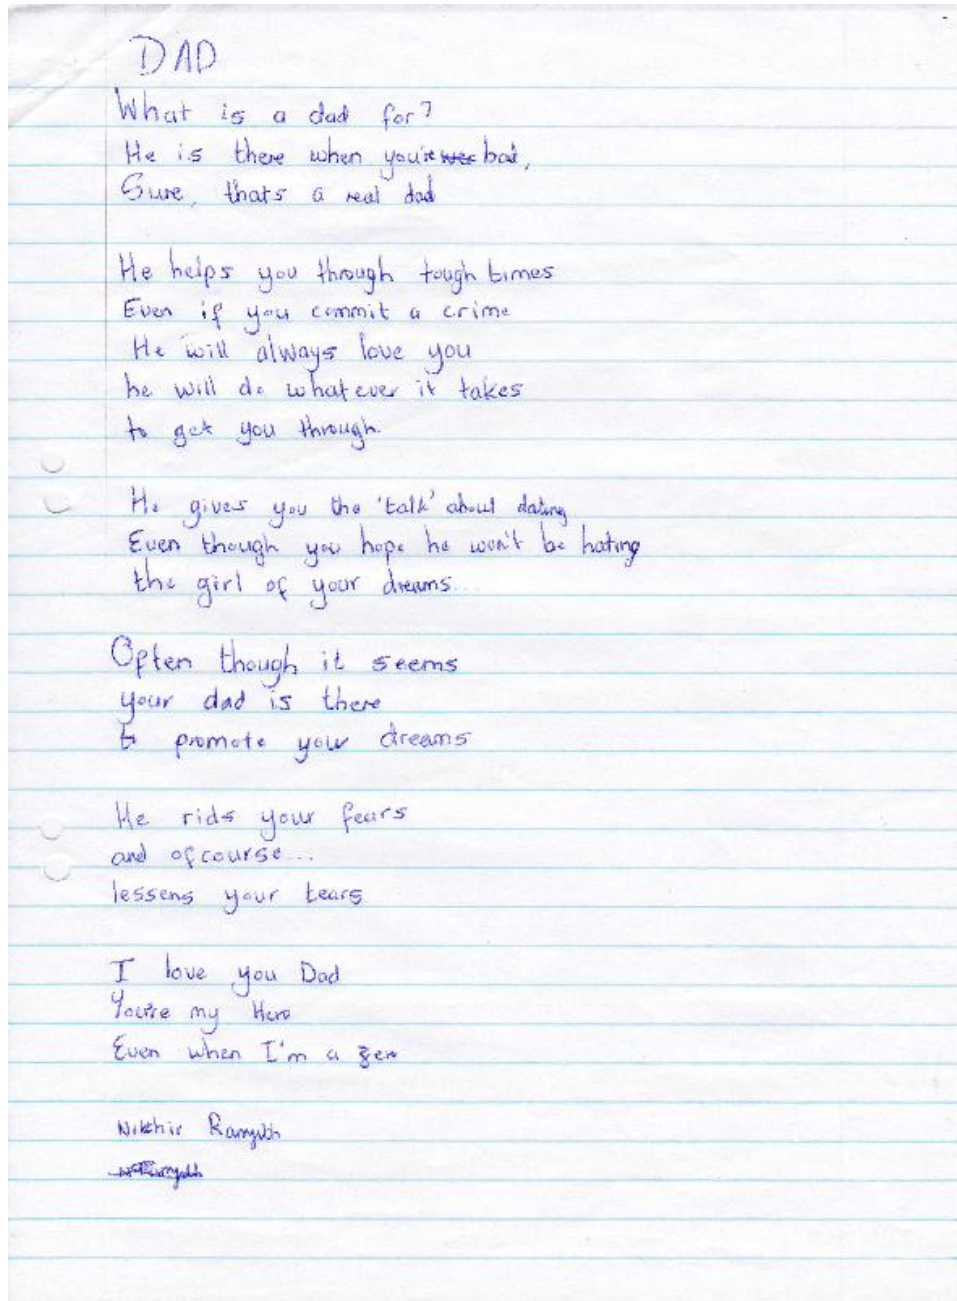 DAD
What is a dad for?
He is there when you're bad,
Sure, thats a real dad
He helps you through tough times
Even if you commit a crime
He will always love you
he will do whatever it takes
to get you through.
He gives you the 'talk' about dating
Even though you hope he won't be hating
the girl of your dreams...
Often though it seems
your dad is there
to promote your dreams
He rids your fears
and ofcourse...
lessens your tears
I love you Dad
You're my Hero
Even when I'm a zero